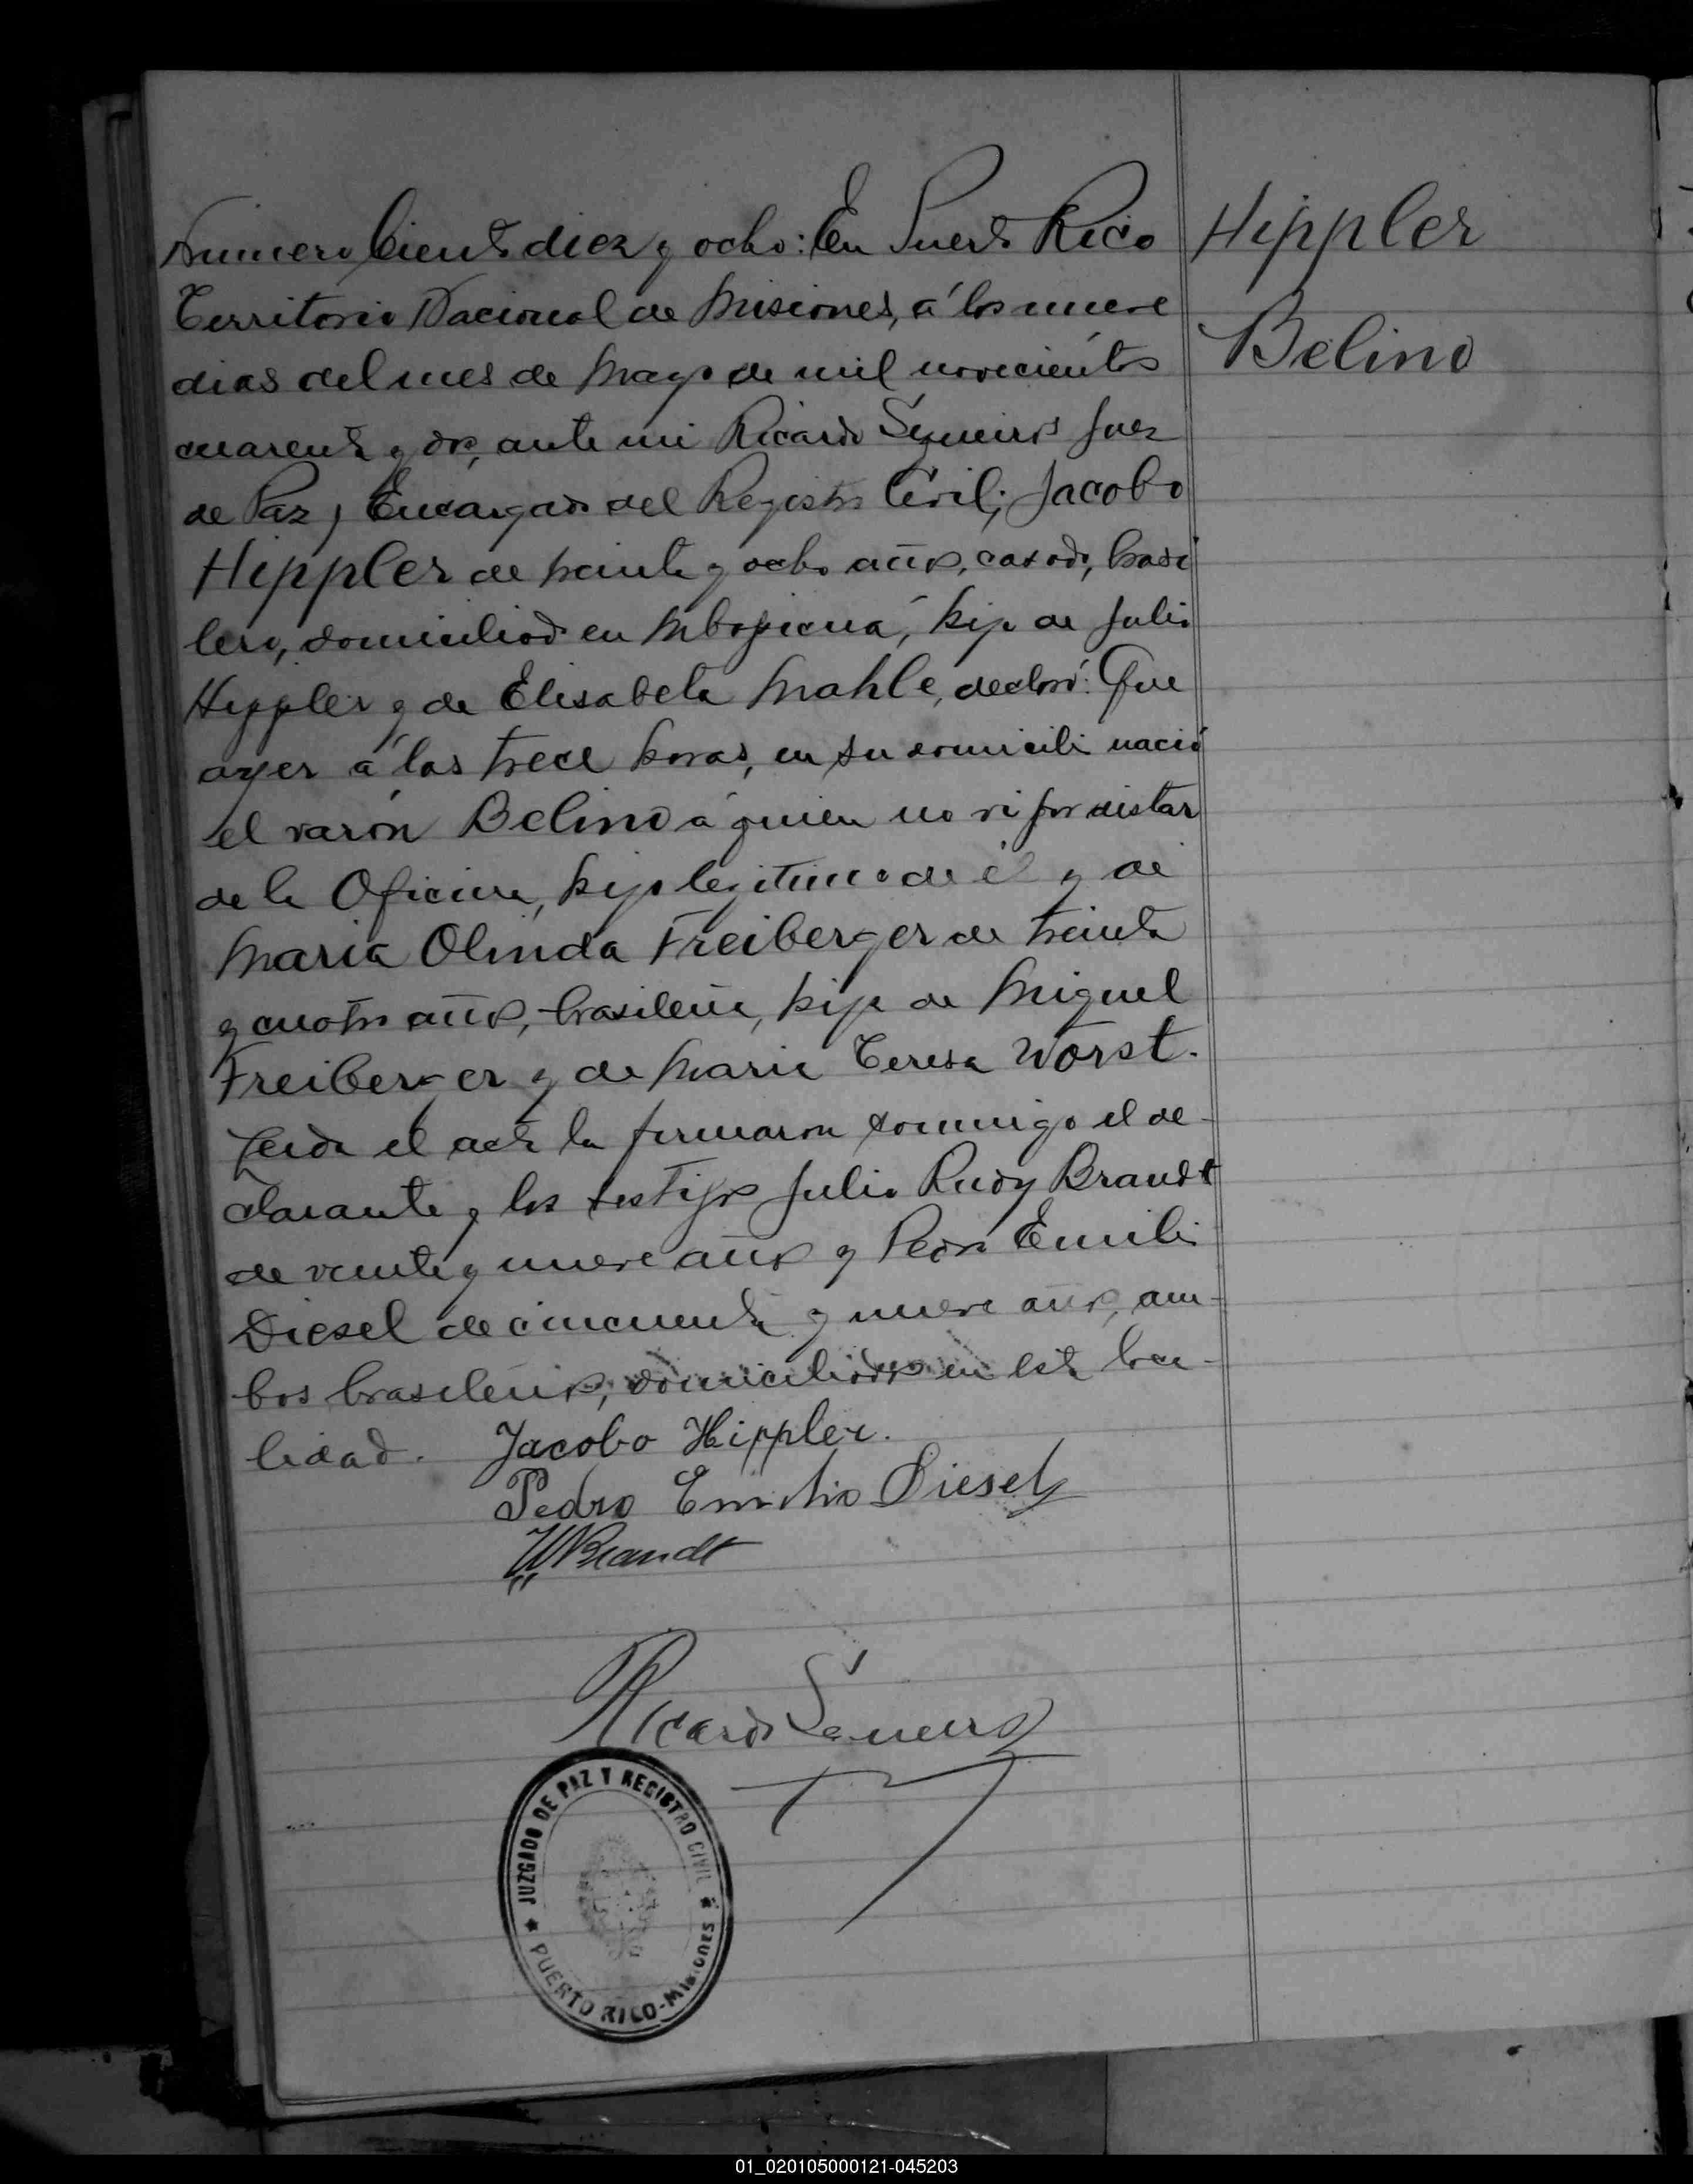 Numero Ciento diez y ocho: En Puerto Rico
Territorio Nacional de Misiones, á los nueve
dias del mes de Mayo de mil novecientos
cuarenta y dos, ante mi Ricardo Juez
de Paz y Encargado del Registro Civil; Jacobo
Hippler de treinta y ocho años, casado, brasi
lero, domiciliado en Mbopicuá, hijo de Julio
Hippler y de Elisabeta Mahle, declaró: Que
ayer á las trece horas, en su domicilio nació
el varón Belino á quien no vi por distar
de la Oficina, hijo legitimo de él y de
Maria Olinda Freiberger de treinta
y cuatro años, brasileña, hija de Miguel
Freiberger y de Maria Teresa Worst.
Leida el acta la firmaron conmigo el de-
clarante y los testigos Julio Rudy Brandt
de veinte y nueve años y Pedro Emilio
Diesel de cincuenta y nueve años, am-
bos brasileños, domiciliados en esta loca-
lidad.
Jacobo Hippler.
Pedro Emilio Diesel
Brandt
Ricardo
JUZGADO DE PAZ Y REGISTRO CIVIL
PUERTO RICO-MISIONES
Hippler
Belino
01_020105000121-045203